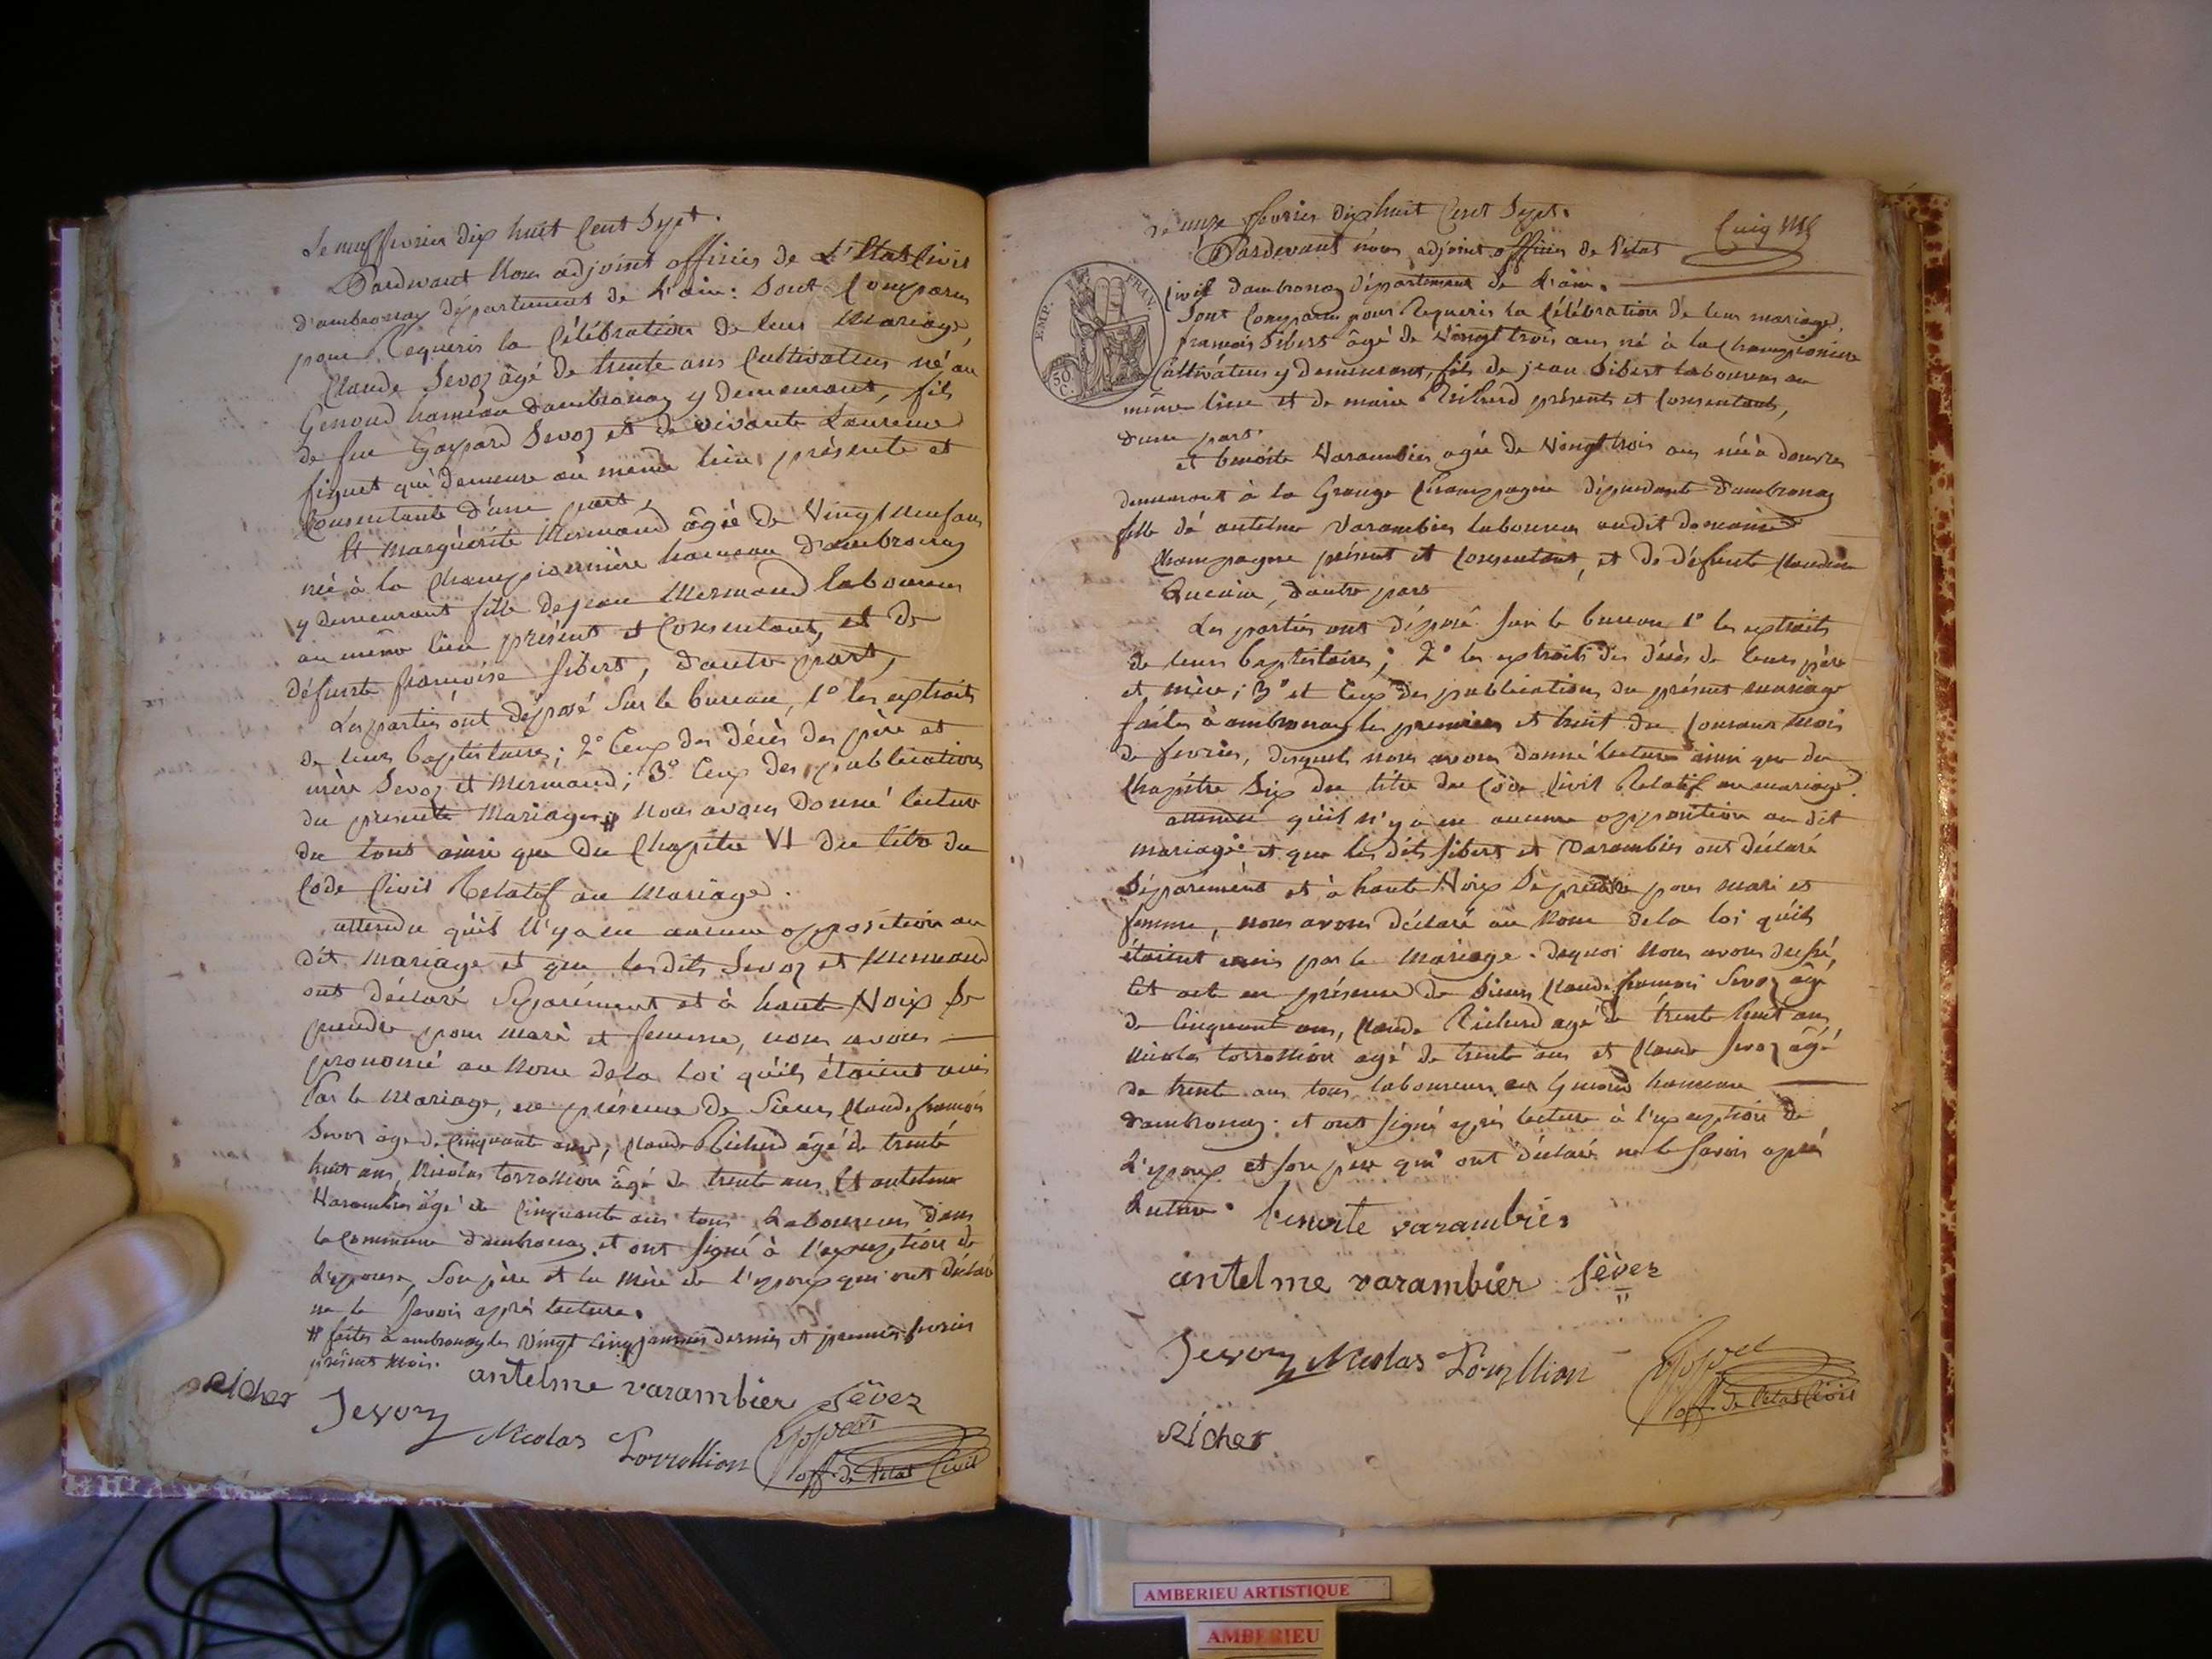 Le neuf fevrier dix huit Cent Sept.
Pardevant Nous adjoint officier de L'Etat Civil
d'ambronay département de L'ain: Sont Comparus
pour Requerir la Célébration de leur Mariage,
Claude Sevoz âgé de trente ans Cultivateur né au
Genoud hameau dambronay y demeurant, fils
de feu Gaspard Sevoz et de vivante Laurence
figuet qui demeure au même lieu, présente et
Consentante d'une part,
Et Marguérite Mermand âgée de Vingt Neuf ans
née à la Championnière hameau d'ambronay
y demeurant fille de jean Mermand laboureur
au même lieu présent et Consentant, et de
défunte françoise sibert, d'autre part,
Les parties ont déposé sur le bureau, 1º les extraits
de leurs baptistaires; 2º Ceux des décès des père et
mère Sevoz et Mermand; 3º Ceux des publications
du présente Mariage # Nous avons donné lecture
du tout ainsi que du Chapitre VI du titre du
Code Civil Relatif au Mariage.
attendu qu'il N'y a eu aucune opposition au
dit Mariage et que les dits Sevoz et Mermand
ont déclaré Séparément et à haute Voix se
prendre pour mari et femme, nous avons
prononcé au Nom de la Loi qu'ils étaient unis
Par le Mariage, en présence de Sieurs Claude françois
Sevoz âgé de Cinquante ans, Claude Richerd âgé de trente
huit ans, Nicolas torrollion âgé de trente ans, Et antelme
Varambier âgé de Cinquante ans tous Laboureurs dans
la Commune d'ambronay, et ont signé à l'exception de
L'épouse, Son père et la Mère de l'époux qui ont déclaré
ne le Savoir après lecture.
# faites à ambronay les Vingt Cinq janvier dernier et premier fevrier
présent Mois.
antelme varambier Sëvez
Richer Sevoz Nicolas Torrollion
off. de l'Etat Civil
Le onze fevrier dix huit Cent Sept.
Pardevant nous adjoint officier de l'etat
Civil dambronay département de L'ain.
Sont Comparus pour Requerir la Célébration de leur mariage,
francois Sibert âgé de Vingt trois ans né à la Championiere
Cultivateur y demeurant, fils de jean Sibert laboureur au
même lieu et de marie Richerd présents et Consentants,
d'une part.
et benoite Varambier agée de Vingt trois ans née à douvres
demeurant à la Grange Champagne dépendante d'ambronay
fille de antelme Varambier laboureur au dit domaine
Champagne présent et Consentant, et de défunte Claudine
d'autre part
Les parties ont déposé sur le bureau 1º les extraits
de leurs baptistaires; 2º les extraits des décès de leurs père
et mère; 3º et Ceux des publications du présent mariage
faites à ambronay les premier et huit du Courant Mois
de fevrier, desquels nous avons donné lecture ainsi que du
Chapitre Six du titre du Code Civil Relatif au mariage.
attendu qu'il n'y a eu aucune opposition au dit
mariage, et que les dits Sibert et Varambier ont déclaré
Séparément et à haute Voix Se prendre pour mari et
femme, nous avons déclaré au Nom de la loi qu'ils
étaient unis par le Mariage. dequoi Nous avons dressé,
Cet acte en présence de Sieurs Claude françois Sevoz âgé
de Cinquante ans, Claude Richerd agé de trente huit ans
Nicolas torrollion agé de trente ans et Claude Sevoz âgé
de trente ans tous laboureurs au Genoud hameau
d'ambronay: et ont signé après lecture à l'exception de
L'époux et son père qui ont déclaré ne le Savoir après
Lecture.
benoite varambier
antelme varambier Sëvez
Sevoz Nicolas Torrollion
off. de l'etat Civil
Richer
EMP. FRAN.
50
C.
AMBERIEU ARTISTIQUE
AMBERIEU